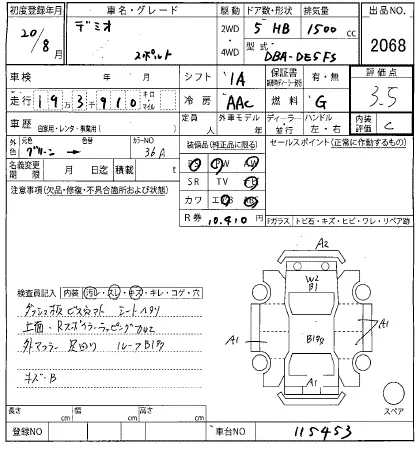 初度登録年月 車名・グレード 駆動 ドア数・形状 排気量 出品NO.
20/8月 デミオ スポルト 2WD 4WD 5 HB 1500cc 2068
型式 DBA-DE5FS
車検 年 月 シフト IA 保証書 有・無 評価点
走行 193千910 キロ マイル 冷房 AAC 燃料 G 3.5
車歴 自家用・レンタ・事業用( ) 定員 人 外車モデル 年 ディーラー・並行 ハンドル 左・右 内装評価 C
外色 元色 グリーン 色替 カラーNO 36A 装備品(純正品に限る) セールスポイント(正常に作動するもの)
名義変更期限 月 日迄 積載 t PS PW
注意事項(欠品・修復・不具合箇所および状態) SR TV
カワ エアB
R券 10.410 Fガラス トビ石・キズ・ヒビ・ワレ・リペア跡
A2
W2
B1
検査員記入 内装 汚レ・スレ・キズ・キレ・コゲ・穴
シートヘタリ
A1 A1 A1
外マフラー 足回り ルーフB1多
キズ・B
A1
スペア
長さ cm 幅 cm 高さ cm
登録NO 車台NO 115453